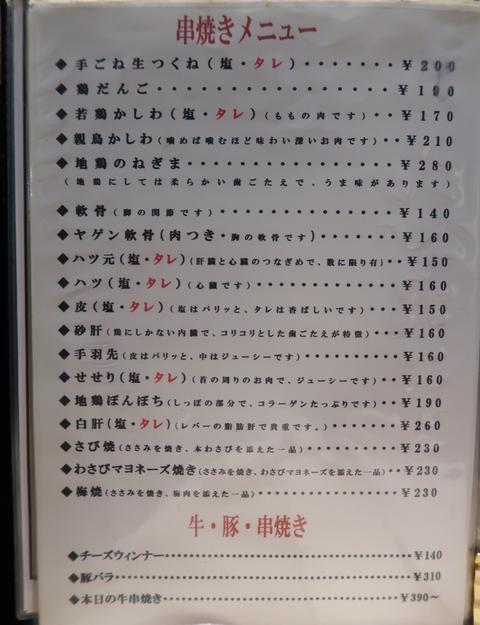 串焼きメニュー
◆手ごね生つくね(塩・タレ)・・・・・・・¥200
◆鶏だんご・・・・・・・・・・・・・・・¥190
◆若鶏かしわ(塩・タレ)(ももの肉です)・・・・¥170
◆親鳥かしわ(噛めば噛むほど味わい深いお肉です)・・・¥210
◆地鶏のねぎま・・・・・・・・・・・・・¥280
(地鶏にしては柔らかい歯ごたえで、うま味があります)
◆軟骨(脚の関節です)・・・・・・・・・・・・¥140
◆ヤゲン軟骨(肉つき・胸の軟骨です)・・・・・・¥160
◆ハツ元(塩・タレ)(肝臓と心臓のつなぎめで、数に限り有)・・¥150
◆ハツ(塩・タレ)(心臓です)・・・・・・・・・・¥160
◆皮(塩・タレ)(塩はパリッと、タレは香ばしいです)・・・・¥150
◆砂肝(鶏にしかない内臓で、コリコリとした歯ごたえが特徴)・・・¥160
◆手羽先(皮はパリッと、中はジューシーです)・・・・・・・・・¥160
◆せせり(塩・タレ)(首の周りのお肉で、ジューシーです)・・・¥160
◆地鶏ぼんぼち(しっぽの部分で、コラーゲンたっぷりです)・・・¥190
◆白肝(塩・タレ)(レバーの脂肪肝で貴重です。)・・・・・・¥260
◆さび焼(ささみを焼き、本わさびを添えた一品)・・・・・・・・・¥230
◆わさびマヨネーズ焼き(ささみを焼き、わさびマヨネーズを添えた一品)・・¥230
◆梅焼(ささみを焼き、梅肉を添えた一品)・・・・・・・・・・・・¥230
牛・豚・串焼き
◆チーズウィンナー・・・・・・・・・・・・・・・・・・・・・・¥140
◆豚バラ・・・・・・・・・・・・・・・・・・・・・・・・・・¥310
◆本日の牛串焼き・・・・・・・・・・・・・・・・・・・・・・¥390～